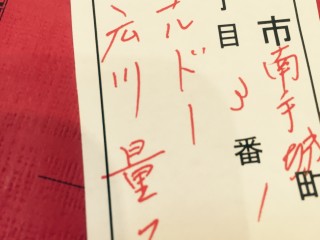 市南手城町
丁目3番1
ルドー
広川量